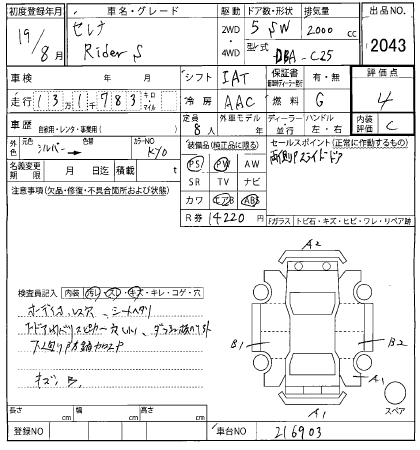 初度登録年月 車名・グレード 駆動 ドア数/形状 排気量 出品NO.
19/8月 セレナ Rider S 2WD 4WD 5 SW 2000 cc 2043
型式 DBA-C25
車検 年 月 シフト IAT 保証書 有・無 評価点
走行 13万1千783 キロ マイル 冷房 AAC 燃料 G 4
車歴 自家用・レンタ・事業用( ) 定員 8人 外車モデル 年 ディーラー 並行 ハンドル 左・右 内装評価 C
外色 元色 シルバー 色替 カラーNO KY0 装備品(純正品に限る) セールスポイント(正常に作動するもの)
名義変更期限 月 日迄 積載 t PS PW AW 両側Pスライドドア
注意事項(欠品・修復・不具合箇所および状態) SR TV ナビ
カワ エアB ABS
R券 14220 円 Fガラス トビ石・キズ・ヒビ・ワレ・リペア跡
A2
検査員記入 内装 汚レ・スレ・キズ・キレ・コゲ・穴
オーディオレス穴、シートヘタリ
B1 B2
下廻り防錆加工中
A1
キズ B
A1 スペア
長さ cm 幅 cm 高さ cm
登録NO 車台NO 216903